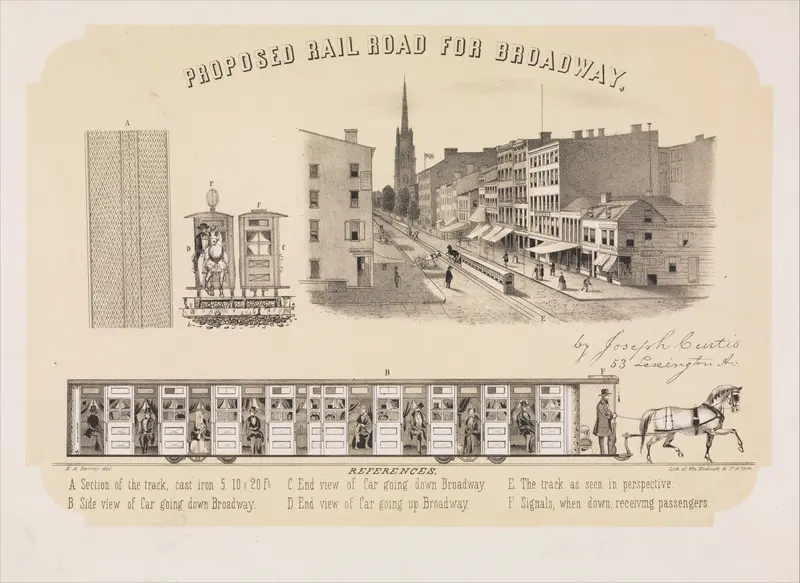 PROPOSED RAIL ROAD FOR BROADWAY,
A
F
F
D
C
E
by Joseph Curtis
53 Lexington Av.
B
F
H. A. Harvey del.
REFERENCES,
Lith of Wm. Endicott & Co N. York
A Section of the track, cast iron 5. 10 x 20 ft.
C End view of Car going down Broadway.
E. The track as seen in perspective.
B Side view of Car going down Broadway.
D End view of Car going up Broadway.
F. Signals, when down, receiving passengers.